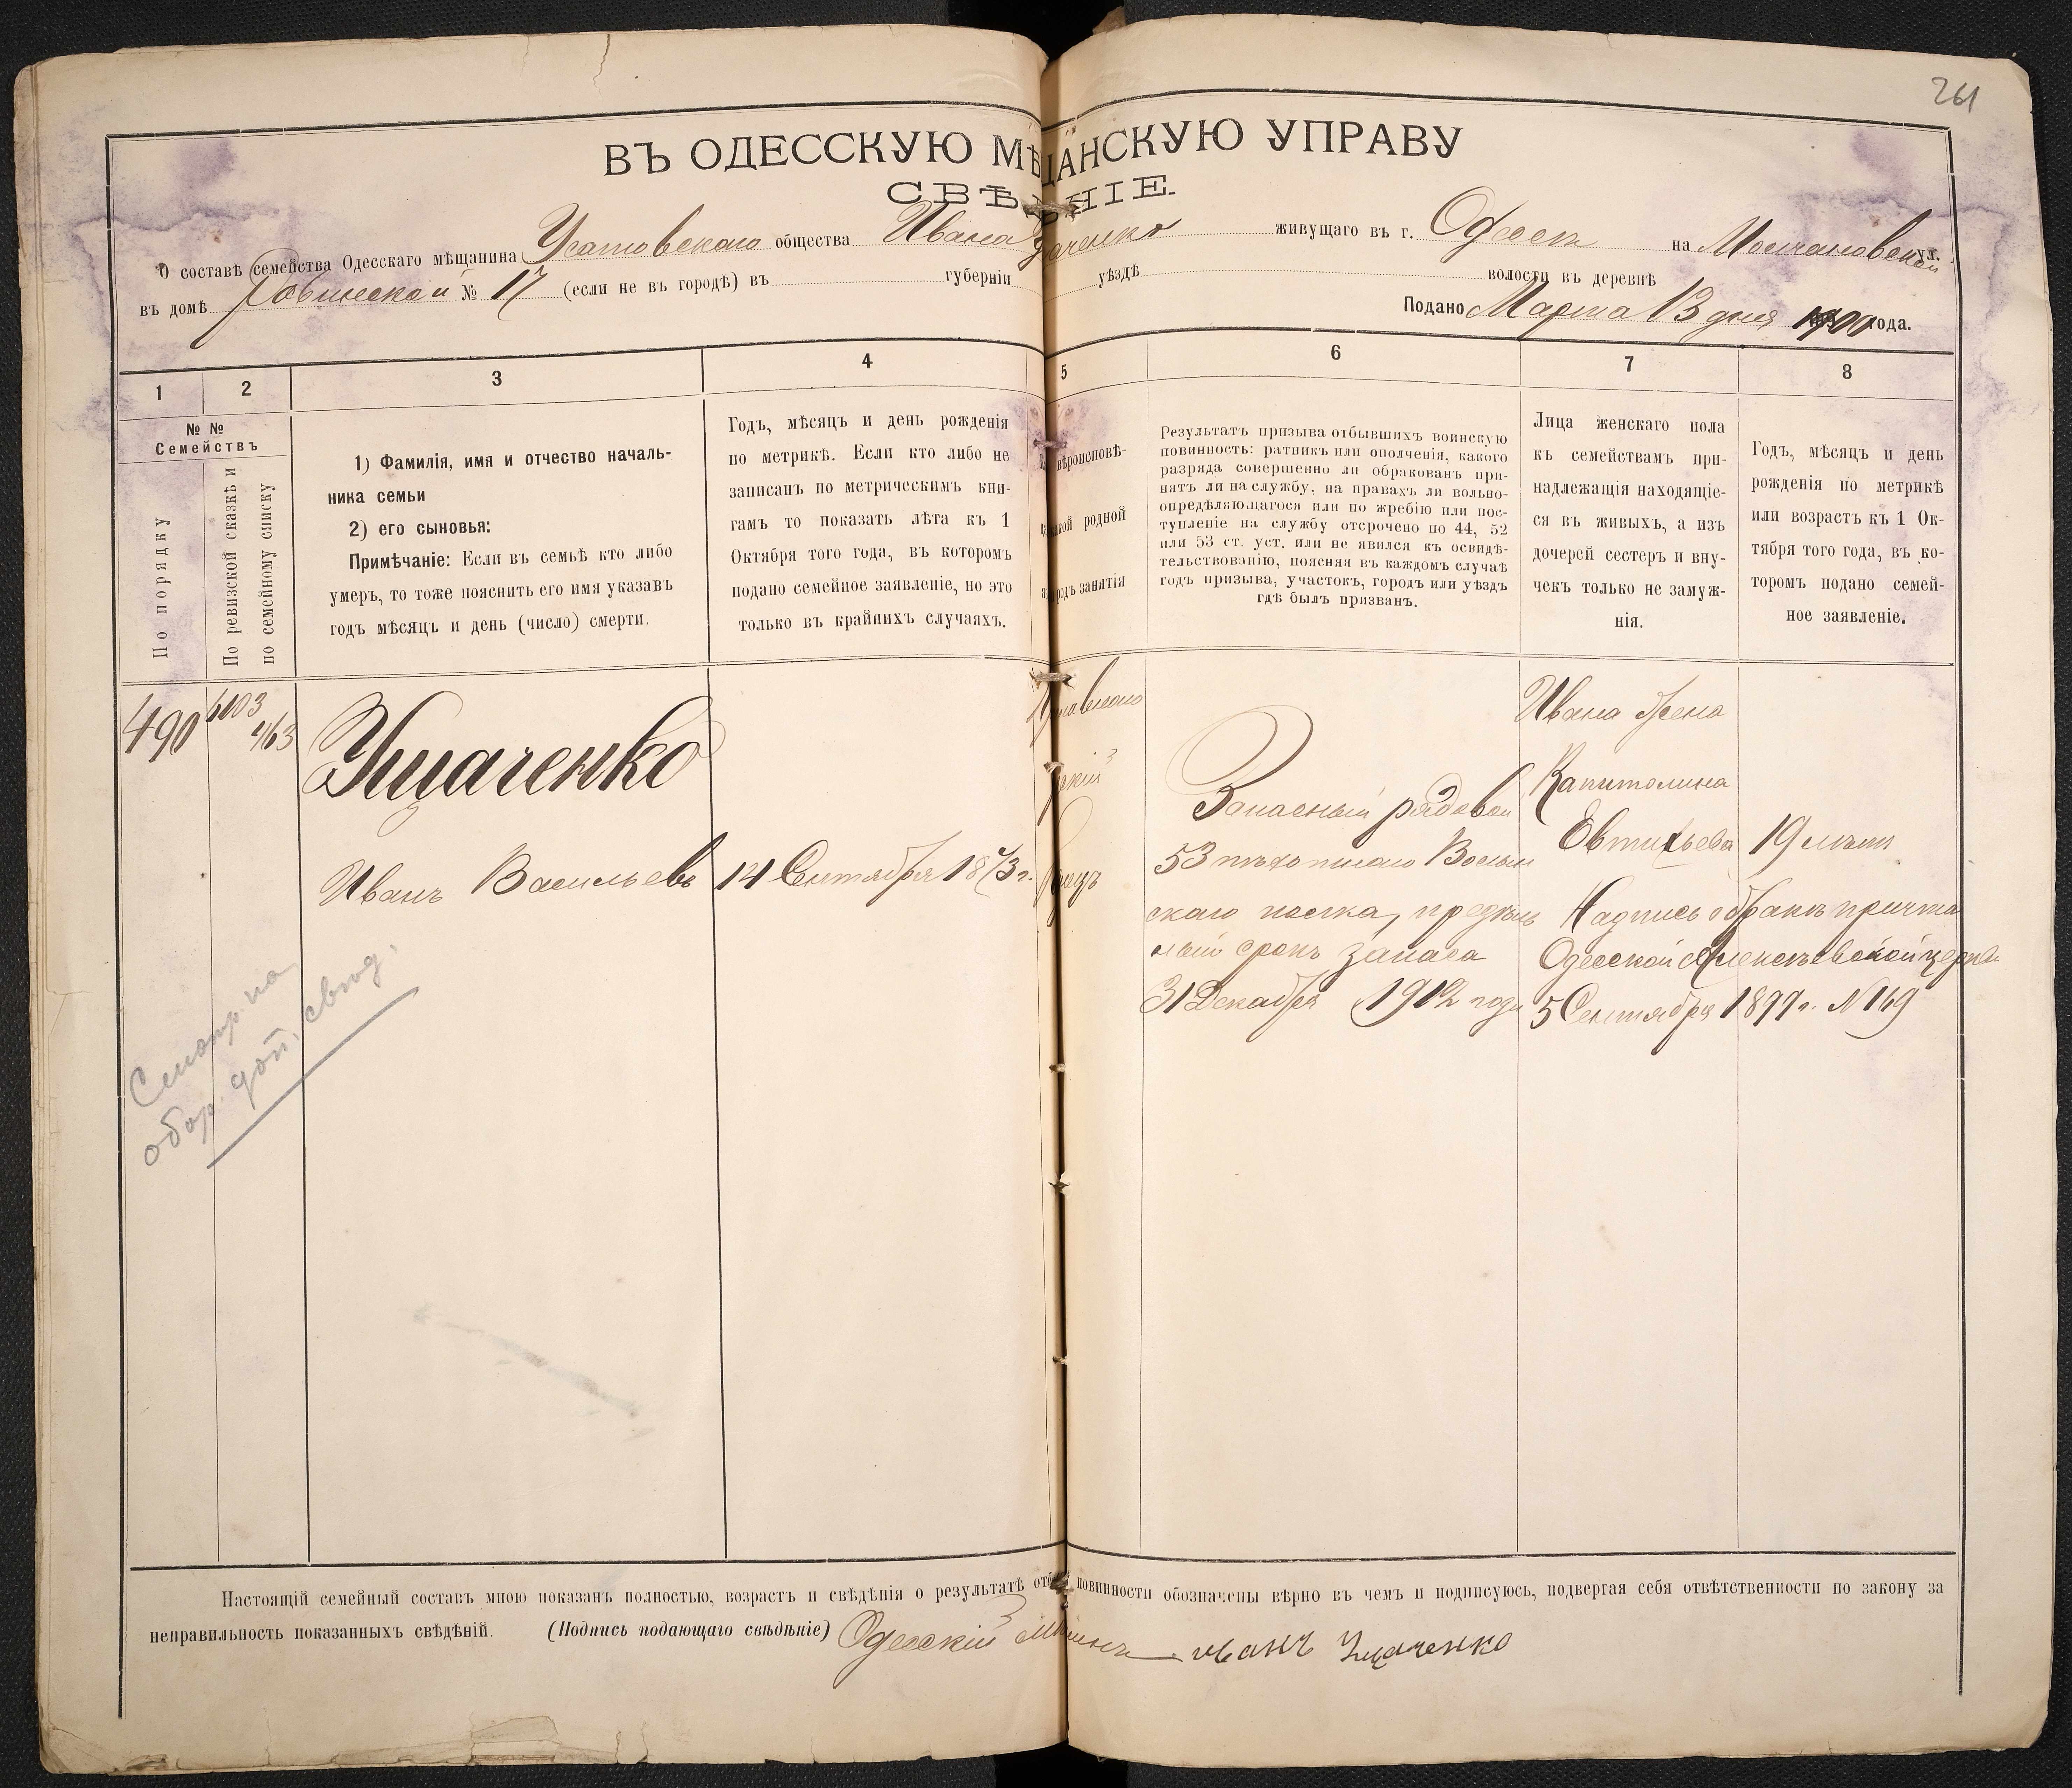 261
ВЪ ОДЕССКУЮ МѢЩАНСКУЮ УПРАВУ
СВѢ НІЕ.
О составѣ семейства Одесскаго мѣщанина Усатовскаго общества Ивана живущаго въ г. Одессѣ на Молчановской ул.
въ домѣ № 17 (если не въ городѣ) въ губерніи уѣздѣ волости въ деревнѣ
Подано Марта 13 дня 1900 года.
1 2 3 4 5 6 7 8
№ №
Семействъ
По порядку
По ревизской сказкѣ и
по семейному списку
1) Фамилія, имя и отчество началь-
ника семьи
2) его сыновья:
Примѣчаніе: Если въ семьѣ кто либо
умеръ, то тоже пояснить его имя указавъ
годъ мѣсяцъ и день (число) смерти.
Годъ, мѣсяцъ и день рожденія
по метрикѣ. Если кто либо не
записанъ по метрическимъ кни-
гамъ то показать лѣта къ 1
Октября того года, въ которомъ
подано семейное заявленіе, но это
только въ крайнихъ случаяхъ.
вѣроисповѣ-
родной
занятія
Результатъ призыва отбывшихъ воинскую
повинность: ратникъ или ополченія, какого
разряда совершенно ли обракованъ при-
нятъ ли на службу, на правахъ ли вольно-
опредѣляющагося или по жребію или пос-
тупленіе на службу отсрочено по 44, 52
или 53 ст. уст. или не явился къ освидѣ-
тельствованію, поясняя въ каждомъ случаѣ
годъ призыва, участокъ, городъ или уѣздъ
гдѣ былъ призванъ.
Лица женскаго пола
къ семействамъ при-
надлежащія находящіе-
ся въ живыхъ, а изъ
дочерей сестеръ и вну-
чекъ только не замуж-
нія.
Годъ, мѣсяцъ и день
рожденія по метрикѣ
или возрастъ къ 1 Ок-
тября того года, въ ко-
торомъ подано семей-
ное заявленіе.
490
Ущаченко
Иванъ Васильевъ
14 Сентября 1873 г.
Запасный рядовой
53 пѣхотнаго Волын
скаго полка, предѣль
ный срокъ запаса
31 Декабря 1912 года
Ивана жена
Капитолина
Евтихьева 19 лѣтъ
Надпись о бракѣ причта
Одесской Алексѣевской церкви
5 Сентября 1899 г. № 149
Смотр. на
обор. доп. свѣд.
Настоящій семейный составъ мною показанъ полностью, возрастъ и свѣдѣнія о результатѣ повинности обозначены вѣрно въ чемъ и подписуюсь, подвергая себя отвѣтственности по закону за
неправильность показанныхъ свѣдѣній. (Подпись подающаго свѣдѣніе) Одесскій иванъ